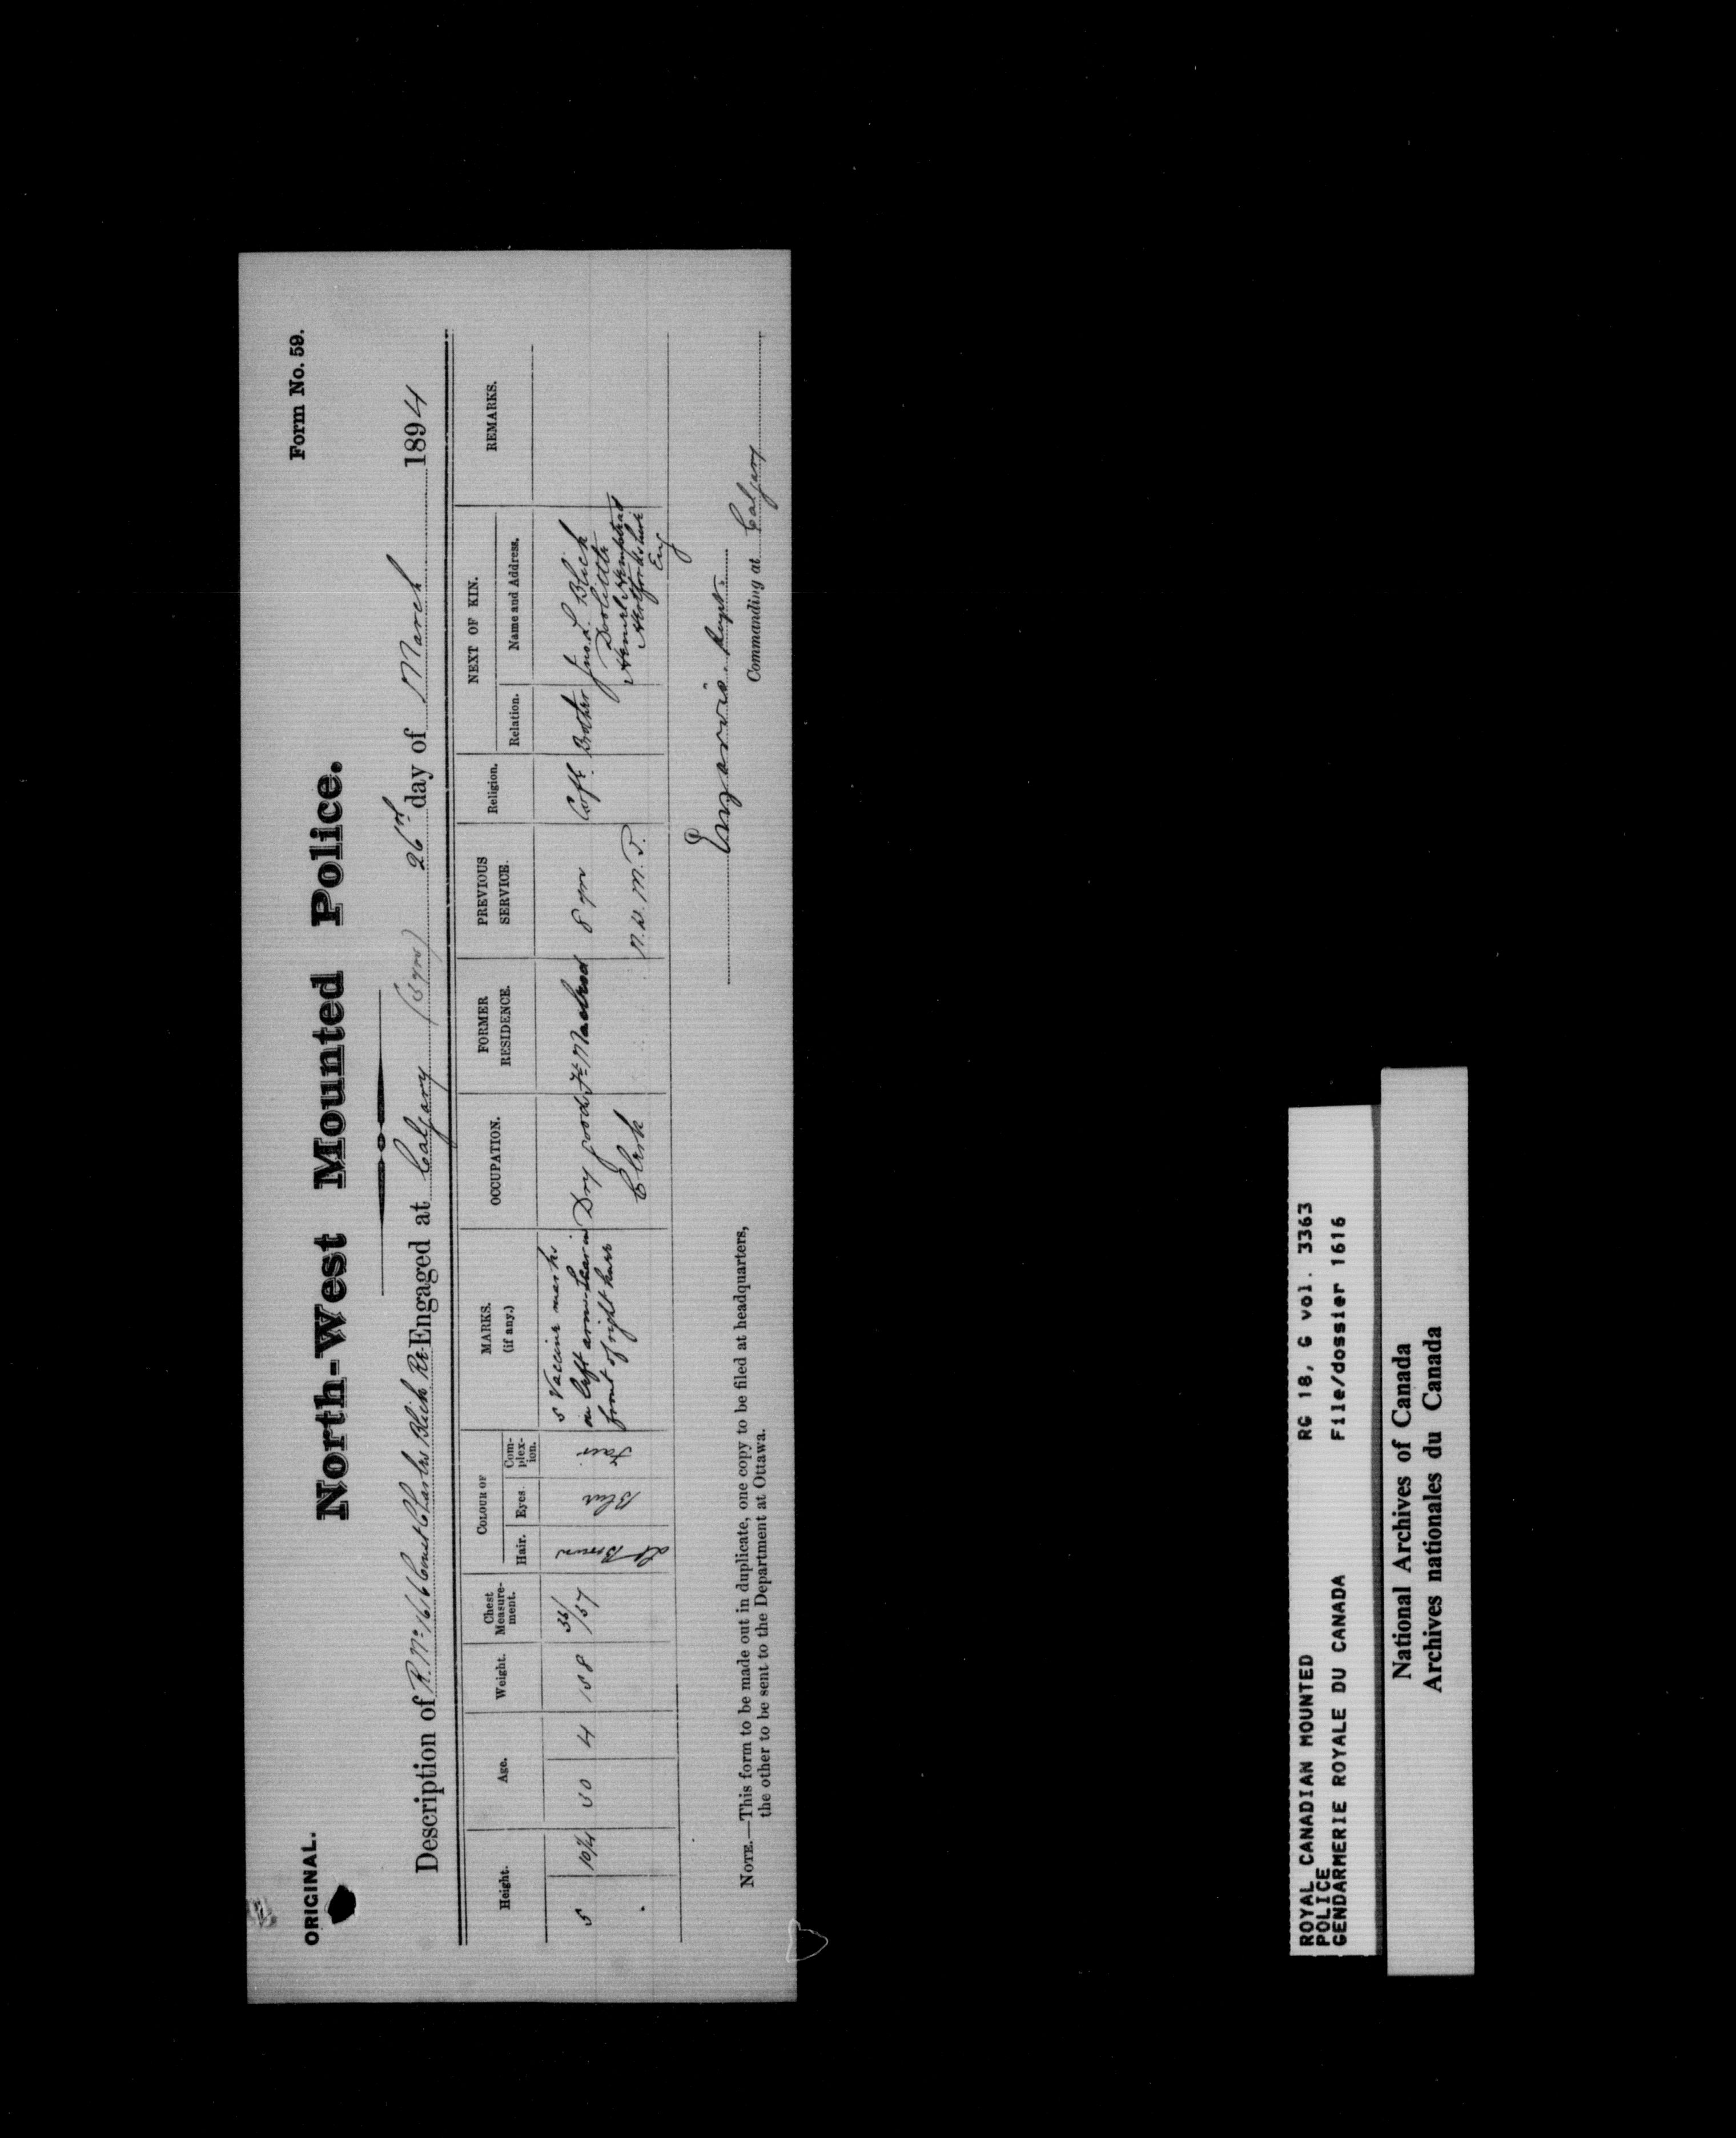 ORIGINAL.
Form No. 59.
North-West Mounted Police.
Description of R. No. 1616 Const Charles Blick Re-Engaged at Calgary (3 yrs) 26th day of March 1894
Height. Age. Weight. Chest Measure-ment. COLOUR OF MARKS. (if any.) OCCUPATION. FORMER RESIDENCE. PREVIOUS SERVICE. Religion. NEXT OF KIN. REMARKS.
Hair. Eyes. Com-plex-ion. Relation. Name and Address.
5 10¼ 30 4 158 36/37 Lt Brown Blue Fair
5 Vaccine marks
on left arm. Scar in
front of right knee
Dry goods
Clerk
Ft. Macleod
8 yrs
N.W.M.P.
C of E.
Brother
Jno. L. Blick
Doolittle
Hemel Hempstead
Hertfordshire
Eng
Supt.
Commanding at Calgary
NOTE.—This form to be made out in duplicate, one copy to be filed at headquarters,
the other to be sent to the Department at Ottawa.
ROYAL CANADIAN MOUNTED RG 18, G vol. 3363
POLICE
GENDARMERIE ROYALE DU CANADA File/dossier 1616
National Archives of Canada
Archives nationales du Canada